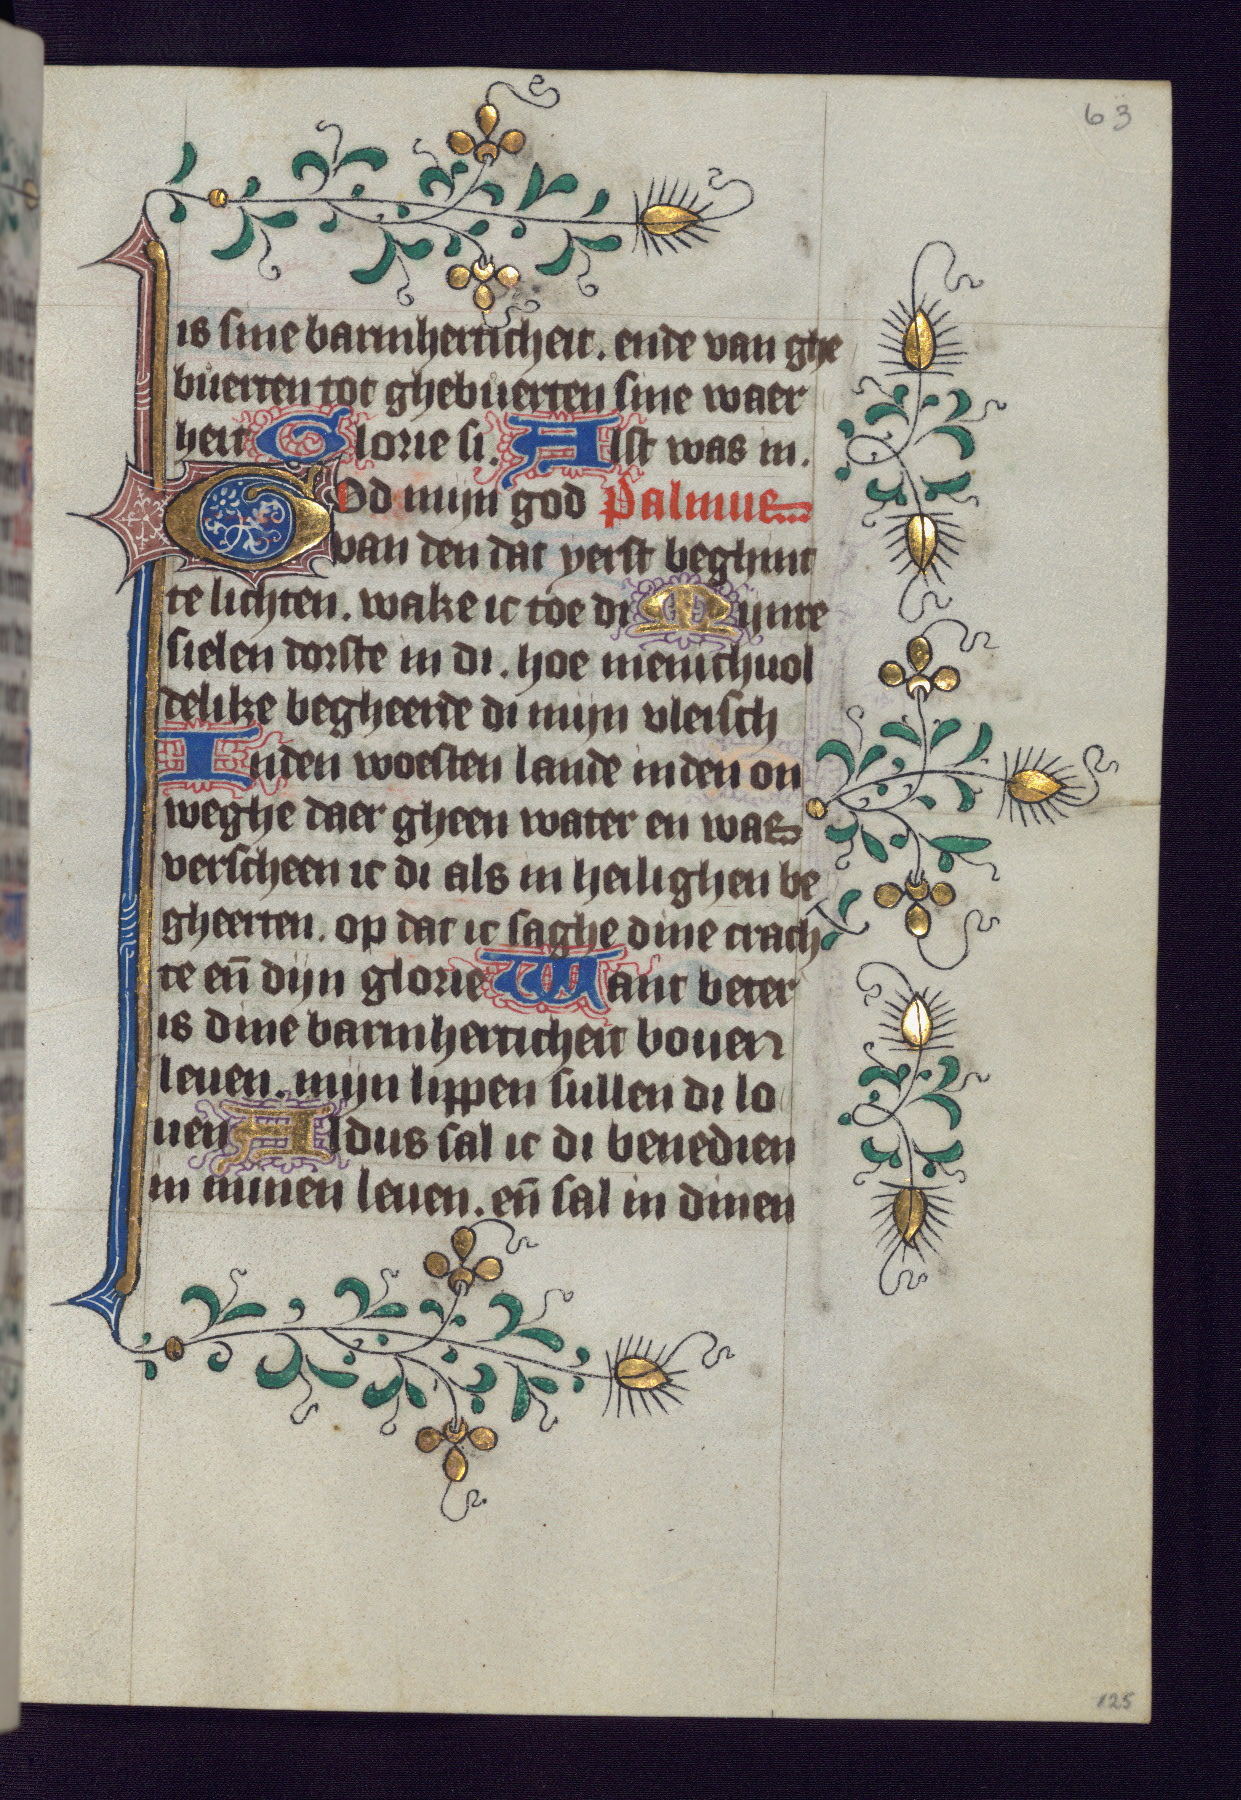 63
is sine barmherticheit. ende van ghe
buerten tot ghebuerten sine waer
heit Glorie si. Alst was in.
God mijn god Psalmus
van den dat yerst beghint
te lichten. wake ic toe di Mijnre
sielen dorste in di. hoe menichuol
delike begheerde di mijn vleisch
Inden woesten lande inden on
weghe daer gheen water en was
verscheen ic di als in heilighen be
gheerten. op dat ic saghe dine crach
te en̄ dijn glorie Want beter
is dine barmherticheit bouen
leuen. mijn lippen sullen di lo
uen Aldus sal ic di benedien
in minen leuen. en̄ sal in dinen
125